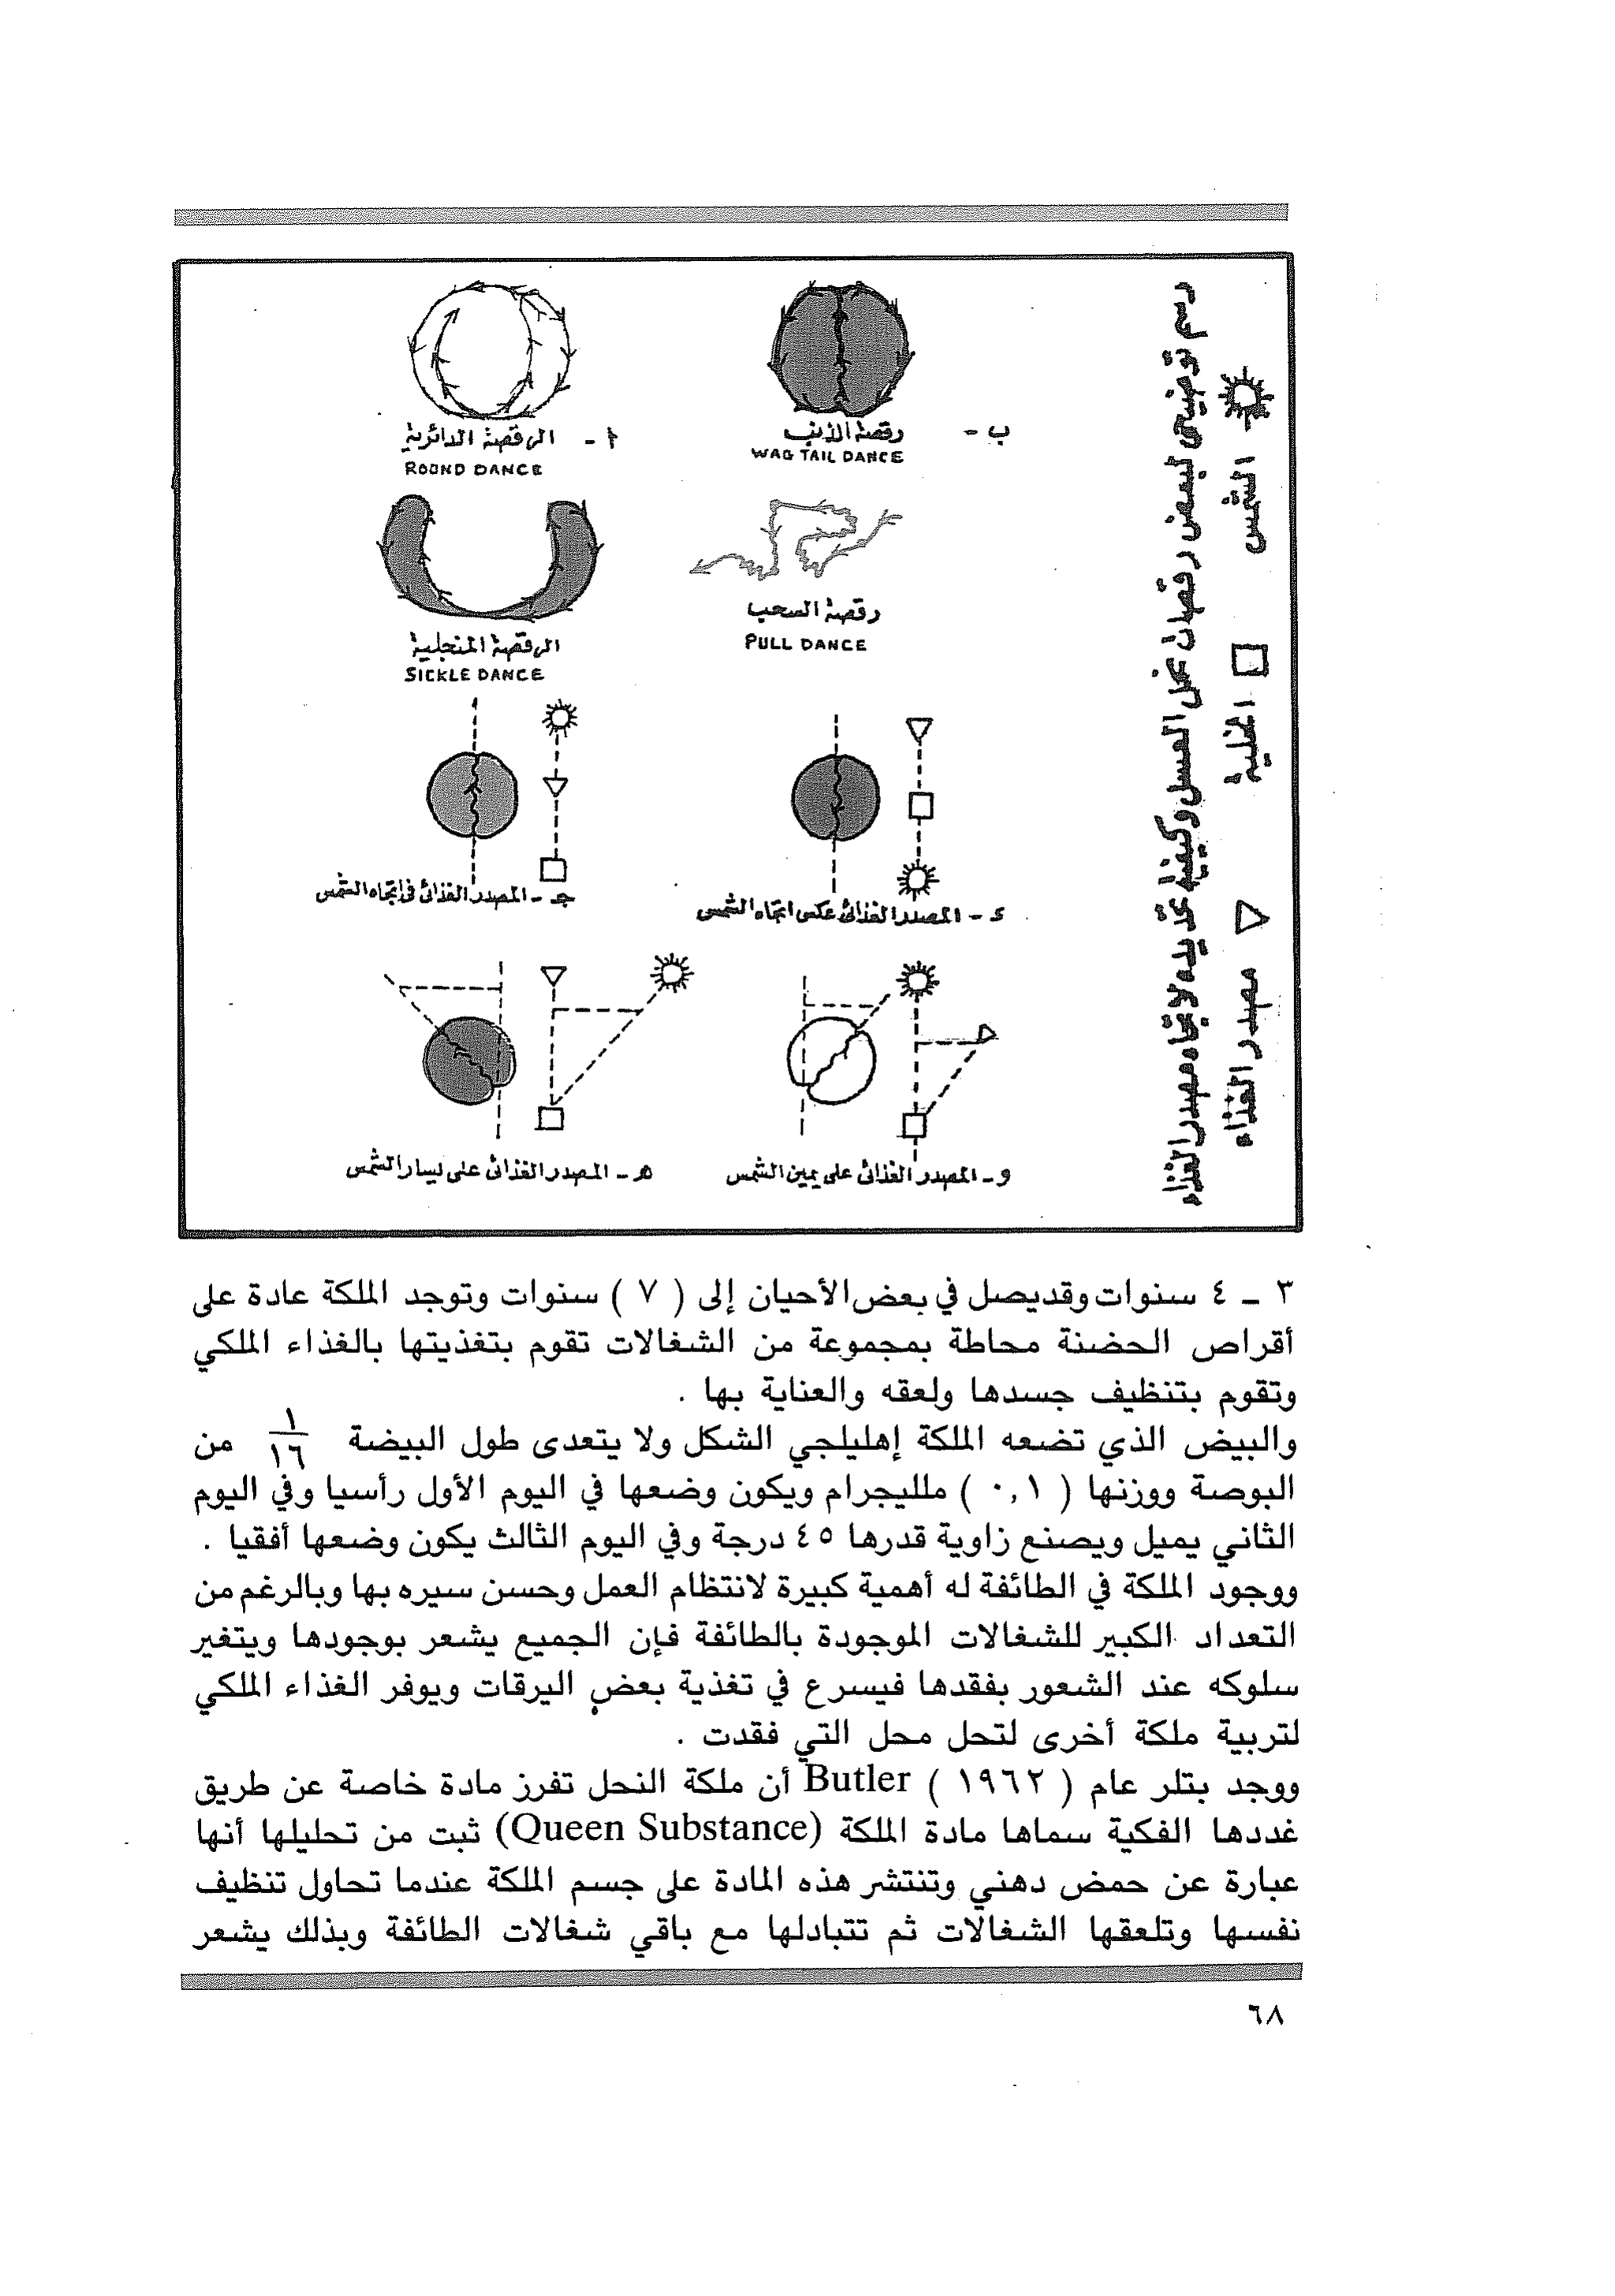 رسم توضيحى لبعض رقصات نحل العسل وكيفية تحديده لاتجاه مصدر الغذاء
الشمس
الخلية
مصدر الغذاء
أ - الرقصة الدائرية
ROUND DANCE
ب - رقصة الذنب
WAG TAIL DANCE
الرقصة المنجلية
SICKLE DANCE
رقصة السحب
PULL DANCE
جـ - المصدر الغذائى فى اتجاه الشمس
د - المصدر الغذائى عكس اتجاه الشمس
هـ - المصدر الغذائى على يسار الشمس
و - المصدر الغذائى على يمين الشمس
٣ - ٤ سنوات وقد يصل في بعض الأحيان إلى ( ٧ ) سنوات وتوجد الملكة عادة على
أقراص الحضنة محاطة بمجموعة من الشغالات تقوم بتغذيتها بالغذاء الملكي
وتقوم بتنظيف جسدها ولعقه والعناية بها .
والبيض الذي تضعه الملكة إهليلجي الشكل ولا يتعدى طول البيضة ١/١٦ من
البوصة ووزنها ( ٠,١ ) ملليجرام ويكون وضعها في اليوم الأول رأسيا وفي اليوم
الثاني يميل ويصنع زاوية قدرها ٤٥ درجة وفي اليوم الثالث يكون وضعها أفقيا .
ووجود الملكة في الطائفة له أهمية كبيرة لانتظام العمل وحسن سيره بها وبالرغم من
التعداد الكبير للشغالات الموجودة بالطائفة فإن الجميع يشعر بوجودها ويتغير
سلوكه عند الشعور بفقدها فيسرع في تغذية بعض اليرقات ويوفر الغذاء الملكي
لتربية ملكة أخرى لتحل محل التي فقدت .
ووجد بتلر عام ( ١٩٦٢ ) Butler أن ملكة النحل تفرز مادة خاصة عن طريق
غددها الفكية سماها مادة الملكة (Queen Substance) ثبت من تحليلها أنها
عبارة عن حمض دهني وتنتشر هذه المادة على جسم الملكة عندما تحاول تنظيف
نفسها وتلعقها الشغالات ثم تتبادلها مع باقي شغالات الطائفة وبذلك يشعر
٦٨